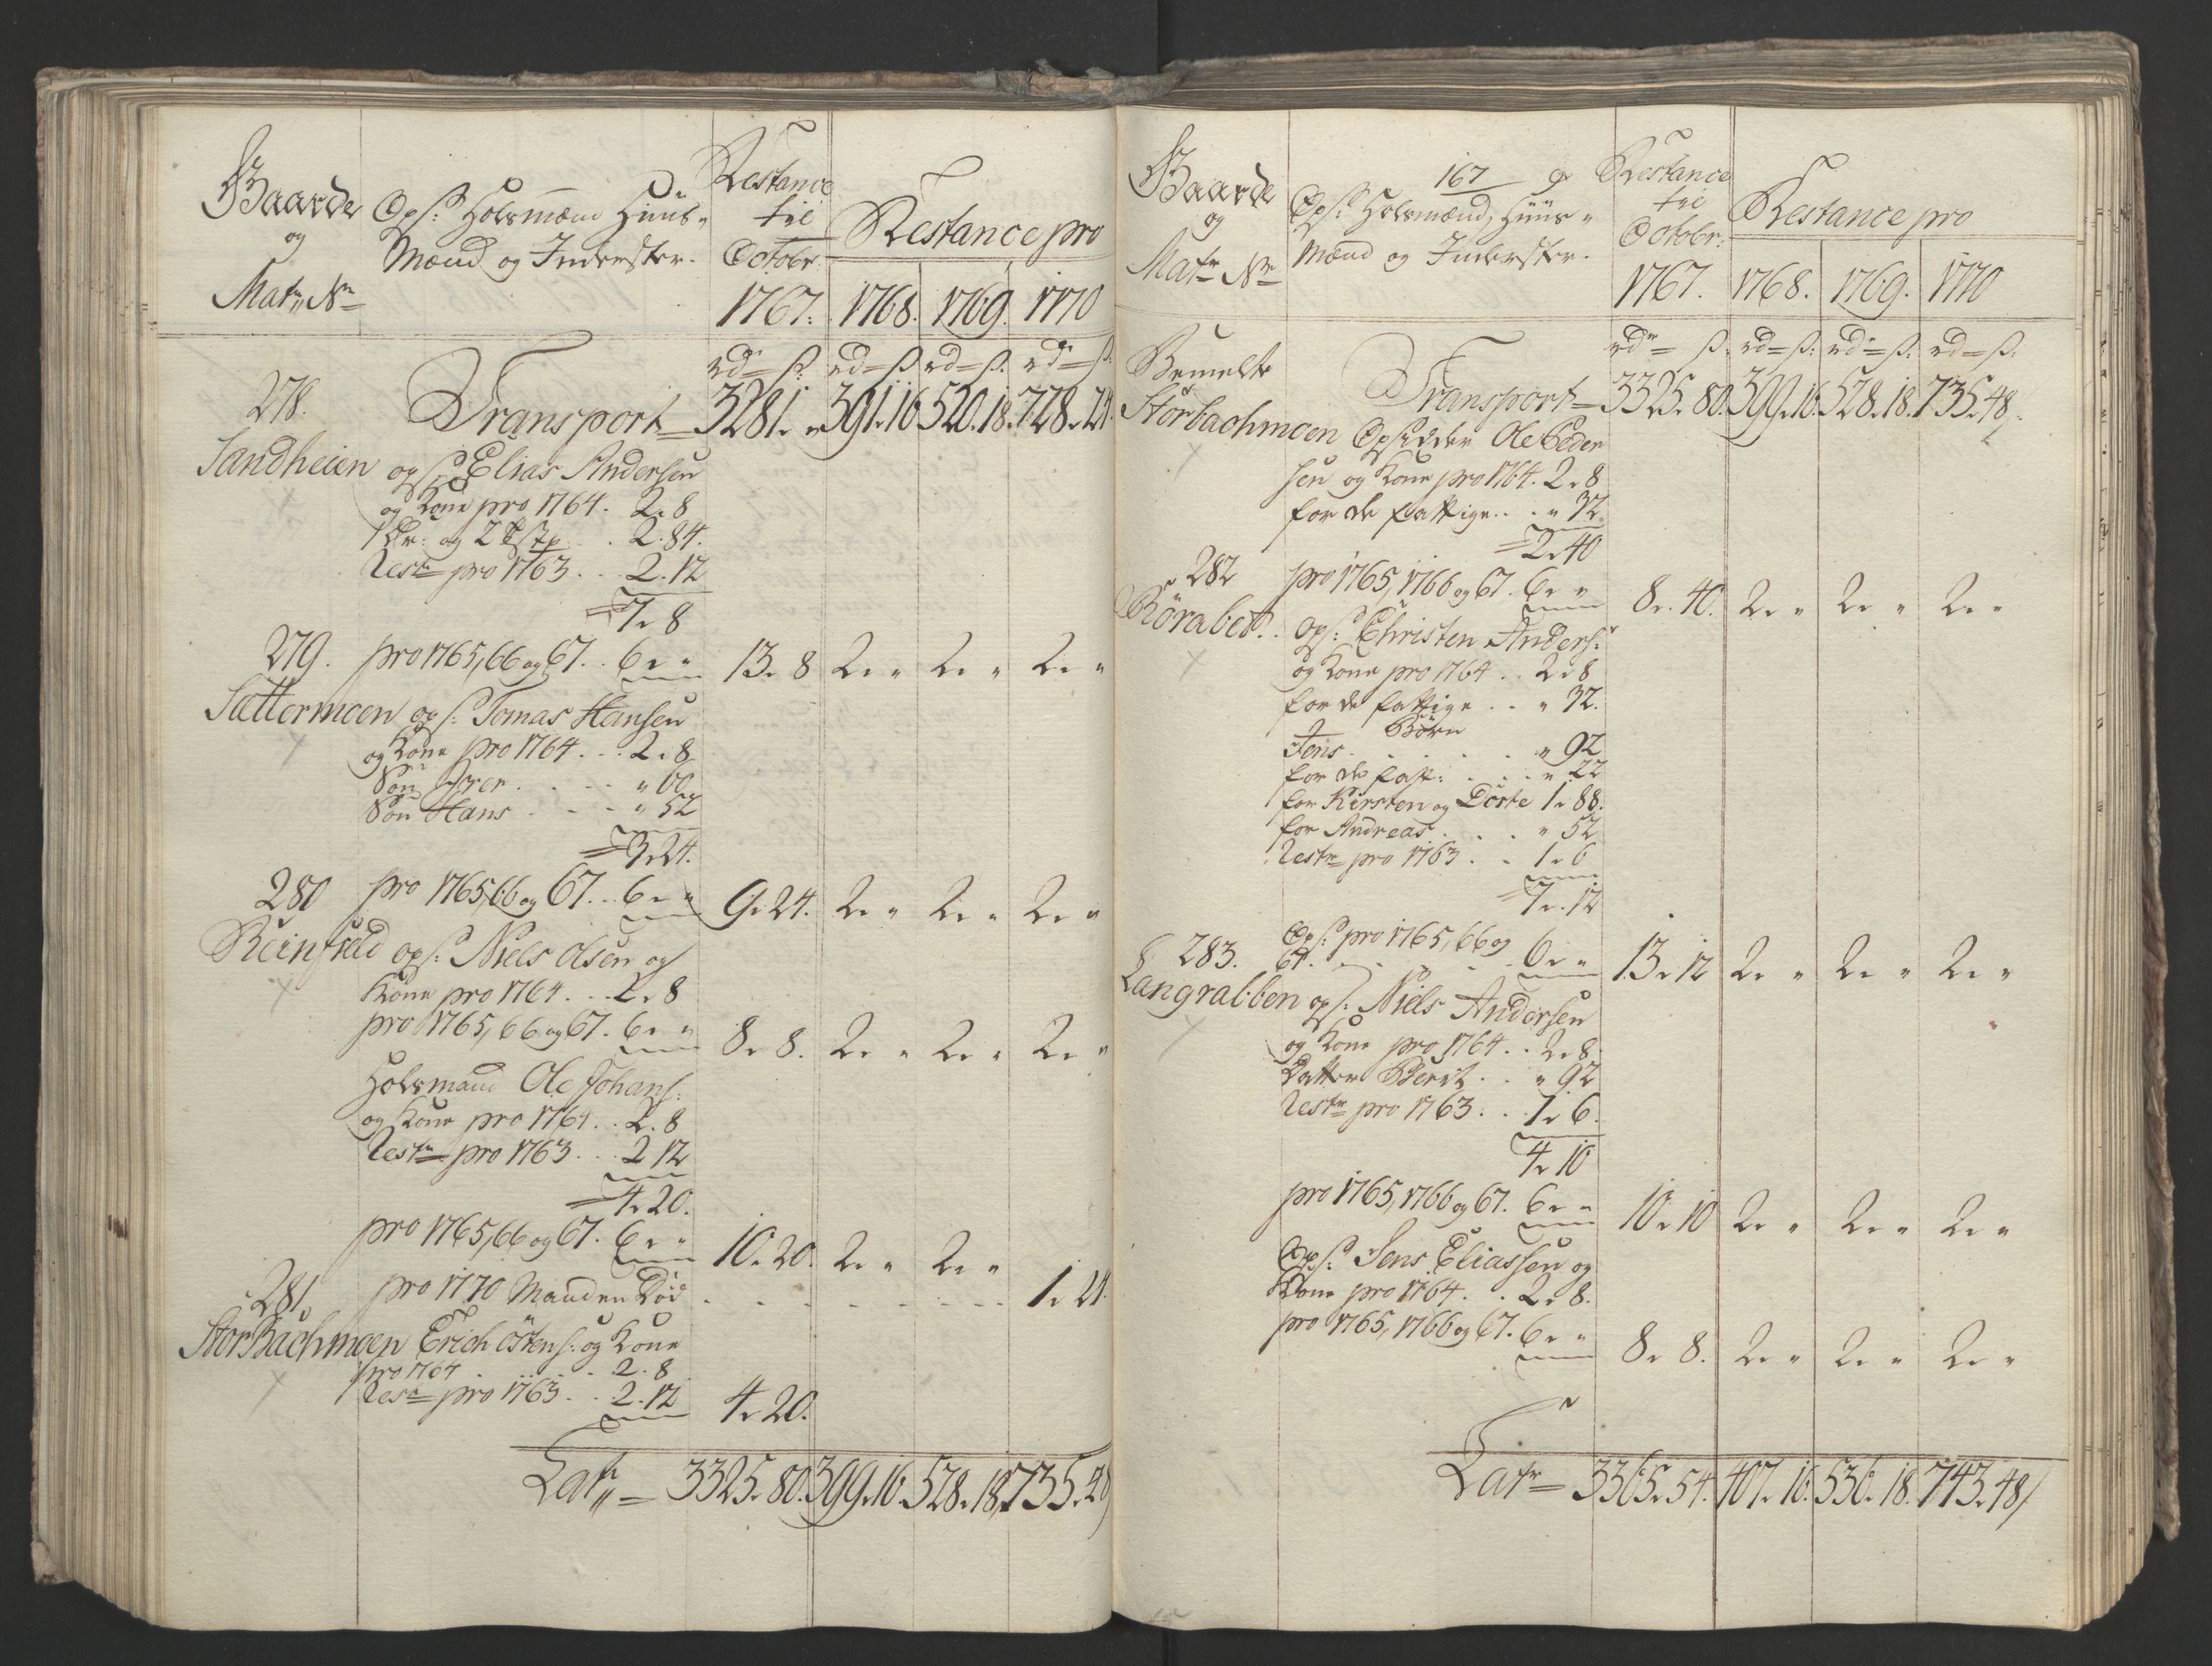 Gaarde
og
Matr: No
Ops: Holsmænd Huus-
Mænd og Inderster.
Restance
til
Octobr:
1767.
Restance pro
1768. 1769. 1770
rd ß: rd ß rd ß. rd ß.
278. Transport 3281. " 391. 16 520. 18. 728. 24.
Sandheien ops: Elias Andersen
og Kone pro 1764. 2. 8
2. 84.
Rest pro 1763 . . 2. 12
7. 8
279. pro 1765, 66 og 67. . 6. " 13. 8 2. " 2. " 2. "
Sættermoen ops: Tomas Hansen
og Kone pro 1764 . . . 2. 8
Søn Iver . . . . " 60
Søn Hans . . . " 52
3. 24.
280 pro 1765, 66 og 67. . 6. " 9. 24. 2. " 2. " 2. "
Reinfield ops: Niels Olsen og
Kone pro 1764 . . . 2. 8
pro 1765, 66 og 67. 6. " 8. 8. 2. " 2. " 2. "
Holsmand Ole Johans:
og Kone pro 1764. . 2. 8
Rest pro 1763 . . . 2 12
4. 20.
pro 1765, 66 og 67. 6. " 10. 20. 2. " 2. "
281 pro 1770 Manden Død . . . . . . . 1. 24.
StorBachmoen Erich Østens: og Kone
pro 1764 . . . . 2. 8
Rest pro 1763 . . 2. 12 4. 20.
Latr 3325. 80. 399. 16. 528. 18. 735. 48

Gaarde
og
Matr No
167
Ops: Holsmænd, Huus-
Mænd og Inderster.
Restance
til
Octobr:
1767.
Restance pro
1768. 1769. 1770
rd ß. rd ß: rd ß: rd ß.
Bemelte
Storbachmoen
Transport 3325. 80. 399. 16. 528. 18. 735. 48.
Opsidder Ole Peder
sen og Kone pro 1764. 2. 8
for de fattige . . . " 32.
2. 40
282 pro 1765, 1766 og 67. 6. " 8. 40. 2. " 2. " 2. "
Rörabet. ops: Christen Anders:
og Kone pro 1764 . . 2. 8
for de fattige . . " 32.
Børn
Jens . . . . . " 92
for de fatt: . . . " 22
for Kirsten og Dorte 1. 88.
for Andreas . . . " 52
Rest pro 1763 . . 1. 6
7. 12
283. Ops: pro 1765, 66 og
67. . . . . 6. " 13. 12 2. " 2. " 2. "
Langrabben ops: Niels Andersen
og Kone pro 1764 . . 2. 8.
Datter Berit . . " 92
Rest pro 1763 . . . 1. 6.
4. 10
pro 1765, 1766 og 67. 6. " 10. 10 2. " 2. " 2. "
Ops: Jens Eliassen og
Kone pro 1764 . . 2. 8.
pro 1765, 1766 og 67. 6. " 8. 8. 2. " 2. " 2. "
Latr 3365. 54. 407. 16. 536. 18. 743. 48